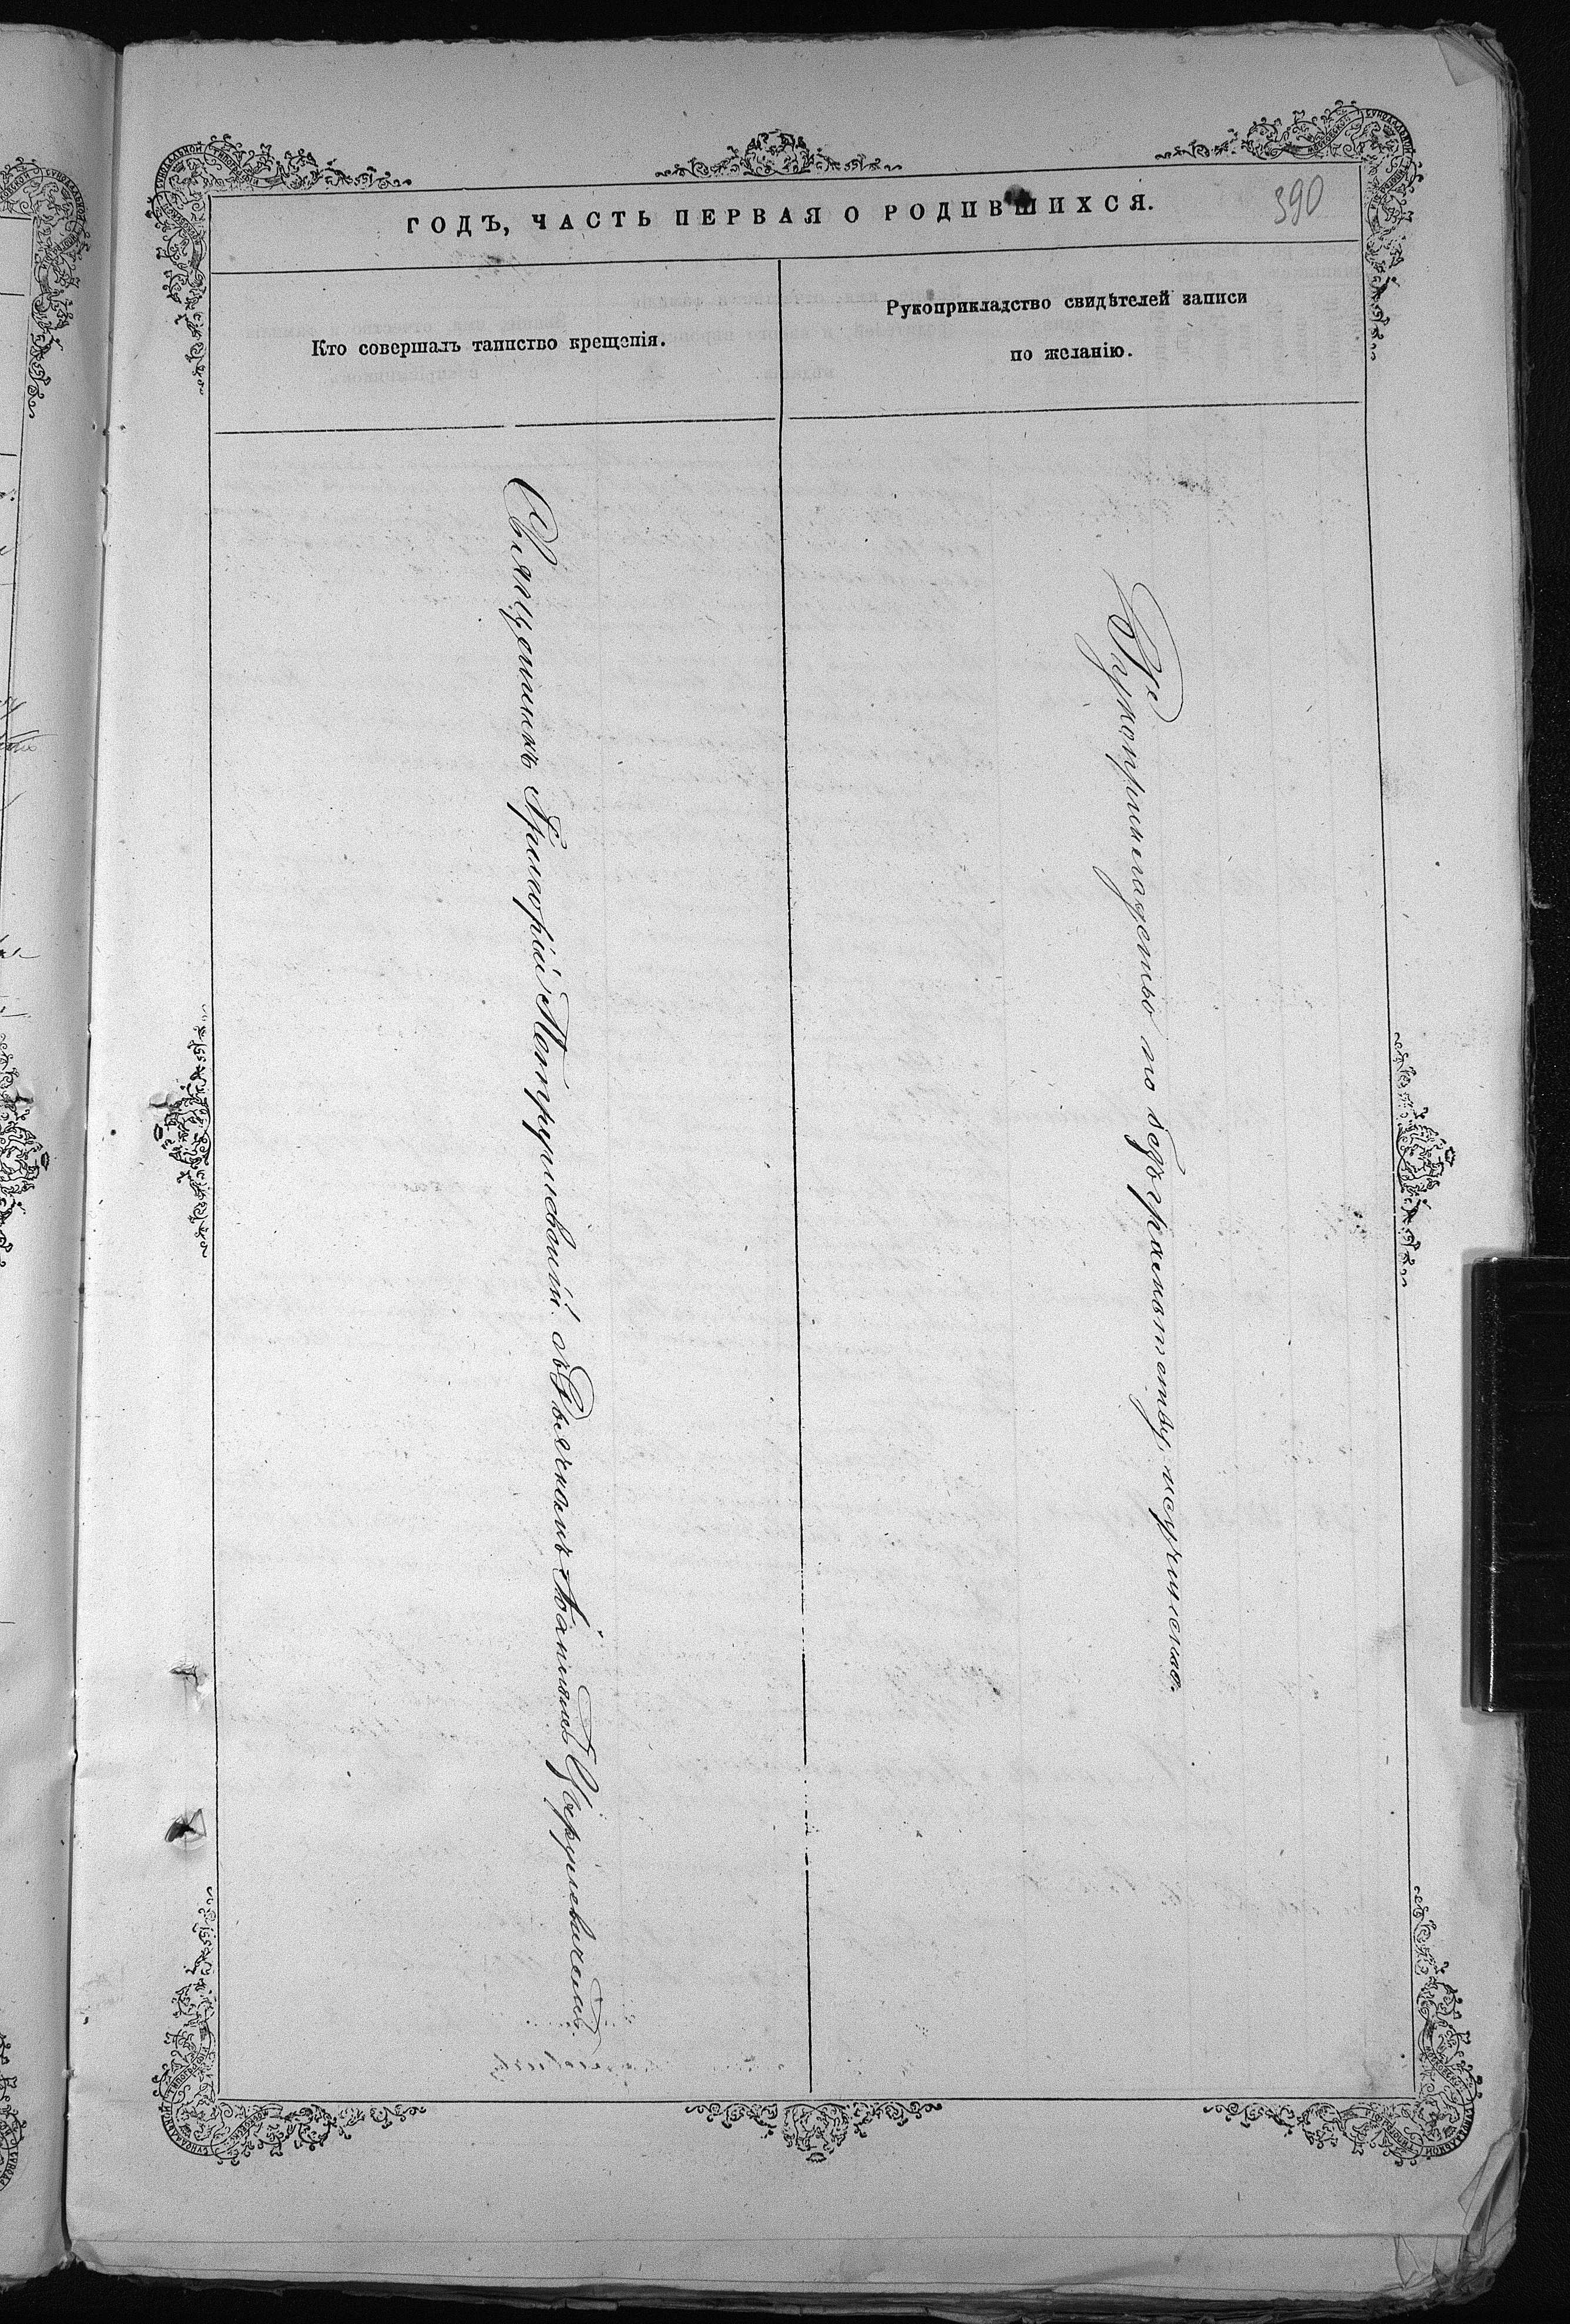 390
ГОДЪ, ЧАСТЬ ПЕРВАЯ О РОДИВШИХСЯ.
Кто совершалъ таинство крещенія.
Рукоприкладство свидѣтелей записи
по желанію.
Священникъ Григорій съ Дьячкомъ
Рукоприкладство по безграмотству, неучинено.